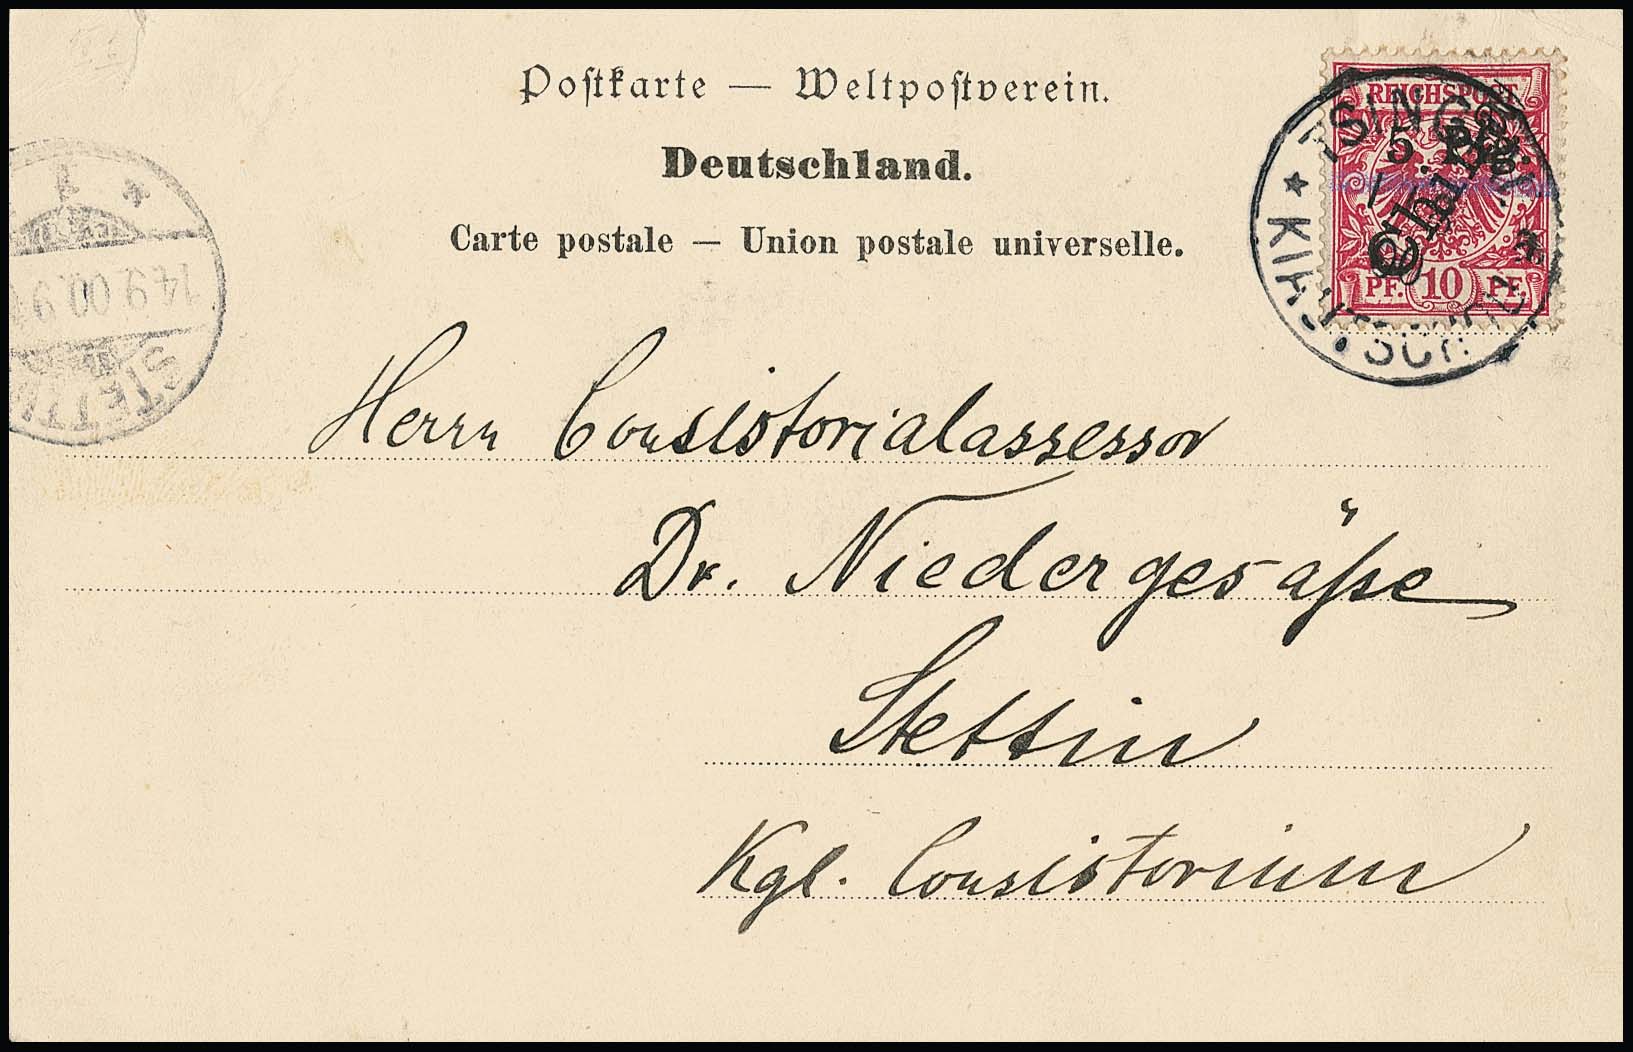 Postkarte — Weltpostverein.
Deutschland.
Carte postale — Union postale universelle.
REICHSPOST
5 Pfg.
China
PF. 10 PF.
KIAUTSCHOU
1
14.9.00.9
STETTIN
Herrn Consistorialassessor
Dr. Niedergesäße
Stettin
Kgl. Consistorium